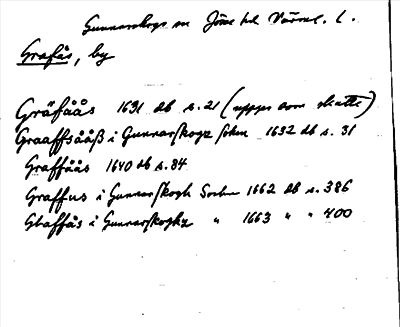 Gunnarskogs sn Jösse hd Värml. l.
Grafås, by
Gräfåås 1631 db s. 21 (uppges som skatte)
Graaffsååß i Gunnarskogz Sokn 1632 db s. 31
Graffåås 1640 db s. 84
Graffuus i Gunnarskogh Sochn 1662 db s. 386
Graffås i Gunnarskoghz " 1663 " " 400